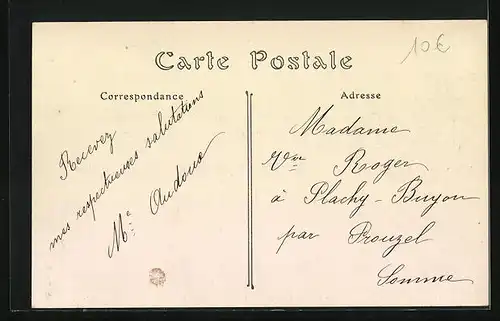 10€
Carte Postale
Correspondance
Adresse
Recevez
mes respectueuses salutations
Me Audoux
Madame
Vve Roger
à Plachy-Buyon
par Prouzel
Somme